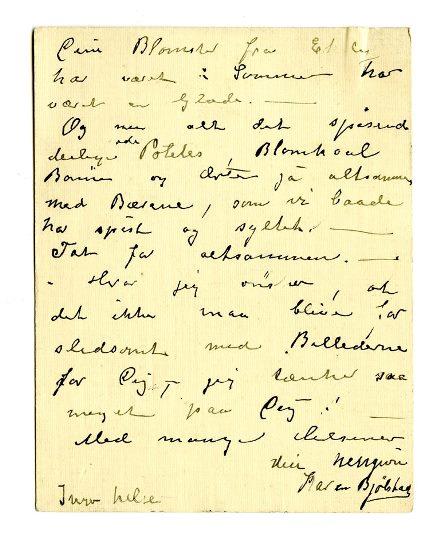 Dine Blomster fra Ekely
har været i Sommer har
været en Glæde. —
Og nu alt det spisende
deilige røde Poteter, Blomkaal
Bønner og Ærter ja altsammen
med Bærene, som vi baade
har spist og syltet. —
Tak for altsammen. —
- Hvor jeg ønsker, at
det ikke maa blive for
slidsomt med Billederne
for Dig, jeg tænker saa
meget paa Dig! —
Med mange Hilsener
din hengivne
Karen Bjølstad
Inger hilser